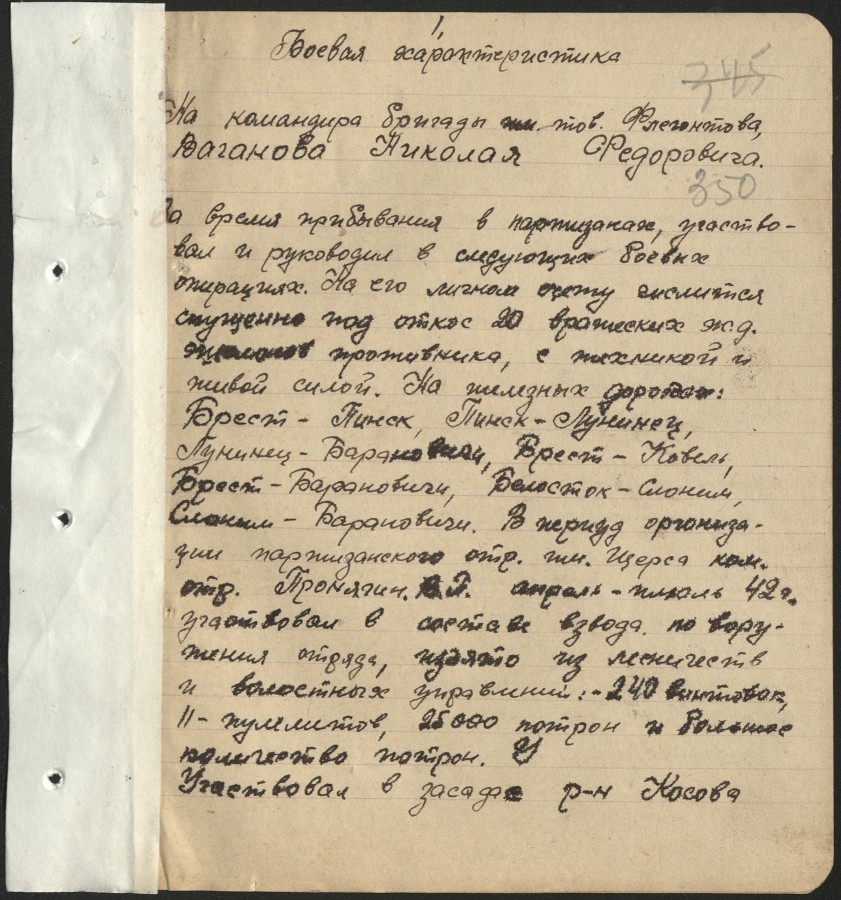 1
Боевая характеристика
345
На командира бригады им. тов. Флегонтова,
Ваганова Николая Федоровича.
350
За время прибывания в партизанах, участво-
вал и руководил в следующих боевых
операциях. На его личном счету числится
спущенно под откос 20 вражеских ж.д.
эшелонов противника, с техникой и
живой силой. На железных дорогах:
Брест - Пинск, Пинск - Лунинец,
Лунинец - Барановичи, Брест - Ковель,
Брест - Барановичи, Белосток - Слоним,
Слоним - Барановичи. В период организа-
ции партизанского отр. им. Щерса ком.
отр. Пронягин. апрель - июль 42 г.
участвовал в составе взвода по воору-
жения отряда, изъято из лесничеств
и волостных управлений: - 240 винтовок,
11 - пулемитов, 25000 патрон и большое
количество патрон. У
Участвовал в засаде р-н Косова